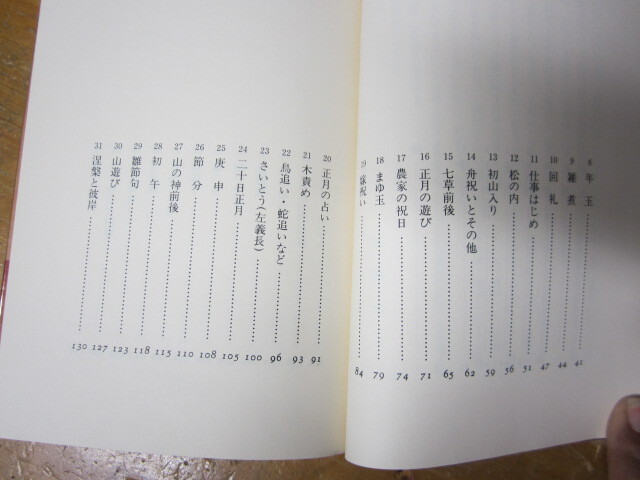 8 年玉 41
9 雑煮 44
10 回礼 47
11 仕事はじめ 51
12 松の内 56
13 初山入り 59
14 舟祝いとその他 62
15 七草前後 65
16 正月の遊び 71
17 農家の祝日 74
18 まゆ玉 79
19 嫁祝い 84
20 正月の占い 91
21 木責め 93
22 鳥追い・蛇追いなど 96
23 さいとう(左義長) 100
24 二十日正月 105
25 庚申 108
26 節分 110
27 山の神前後 115
28 初午 118
29 雛節句 123
30 山遊び 127
31 涅槃と彼岸 130